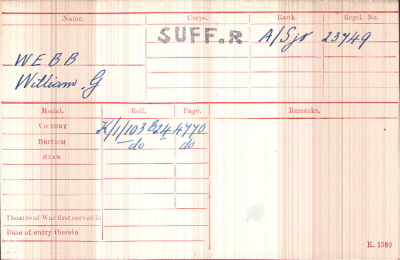 Name. Corps. Rank. Regtl. No.
SUFF.R A/Sjt 23749
WEBB
William G
Medal. Roll. Page.
Remarks.
Victory K/1/103 B24 4770
British do do
Star
Theatre of War first served in
Date of entry therein
K. 1380